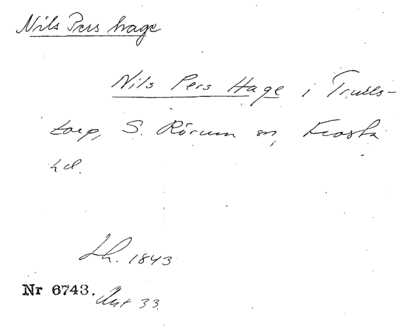 Nils Pers hage
Nils Pers Hage i Trulls-
torp, S. Rörum sn, Frosta
hd.
Lh. 1843
Nr 6743. Ant 33.